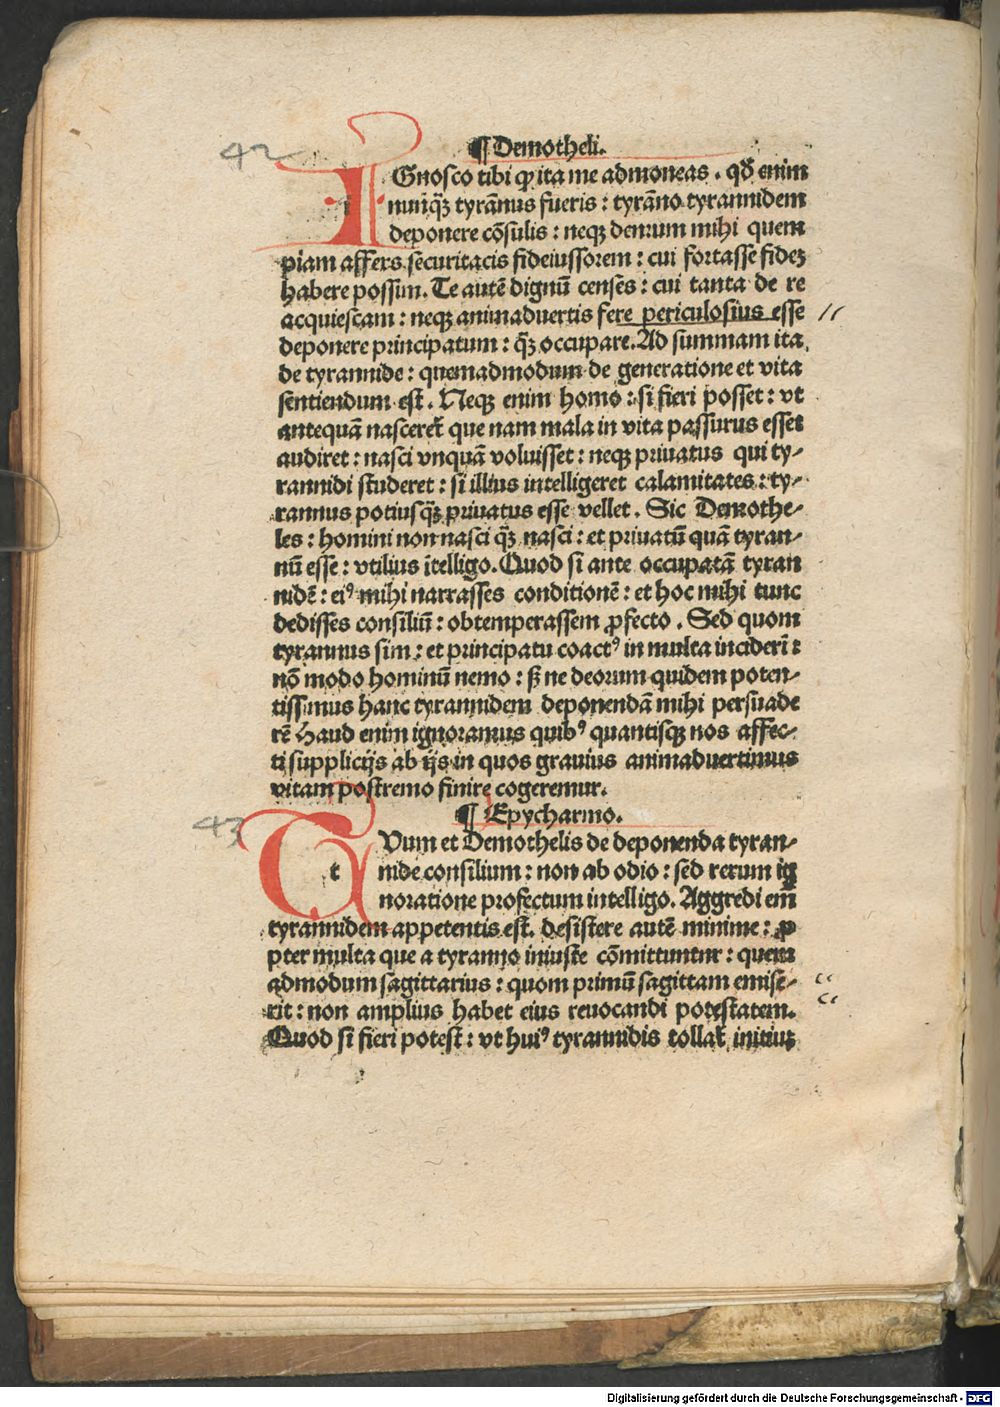 42
¶ Demotheli.
IGnosco tibi ꝙ ita me admoneas . qđ enim
nunq̃ꝫ tyrãnus fueris : tyrãno tyrannidem
deponere cõsulis : neqꝫ demum mihi quem
piam affers securitatis fideiussorem : cui fortasse fideꝫ
habere possim. Te autẽ dignũ censes : cui tanta de re
acquiescam : neqꝫ animaduertis fere periculosius esse
deponere principatum : q̃ꝫ occupare. Ad summam ita
de tyrannide : quemadmodum de generatione et vita
sentiendum est . Neqꝫ enim homo : si fieri posset : vt
antequã nasceret᷑ que nam mala in vita passurus esset
audiret : nasci vnquã voluisset : neqꝫ priuatus qui ty-
rannidi studeret : si illius intelligeret calamitates : ty-
rannus potiusq̃ꝫ priuatus esse vellet . Sic Demothe-
les : homini non nasci q̃ꝫ nasci : et priuatũ quã tyran-
nũ esse : vtilius ĩtelligo. Quod si ante occupatã tyran
nidẽ : eiꝰ mihi narrasses conditionẽ : et hoc mihi tunc
dedisses consiliũ : obtemperassem ꝓfecto . Sed quom
tyrannus sim : et principatu coactꝰ in multa inciderĩ :
nõ modo hominũ nemo : sꝫ ne deorum quidem poten-
tissimus hanc tyrannidem deponendã mihi persuade
rẽ Haud enim ignoramus quibꝰ quantisqꝫ nos affec-
ti supplicijs ab ijs in quos grauius animaduertimus
vitam postremo finire cogeremur.
43
¶ Epycharmo.
t
TVum et Demothelis de deponenda tyran-
nide consilium : non ab odio : sed rerum ig
noratione profectum intelligo. Aggredi em̃
tyrannidem appetentis est. desistere autẽ minime : ꝓ
pter multa que a tyranno iniuste cõmittuntur : quem
admodum sagittarius : quom primũ sagittam emise-
rit : non amplius habet eius reuocandi potestatem.
Quod si fieri potest : vt huiꝰ tyrannidis tollat᷑ initiuꝫ
Digitalisierung gefördert durch die Deutsche Forschungsgemeinschaft - DFG